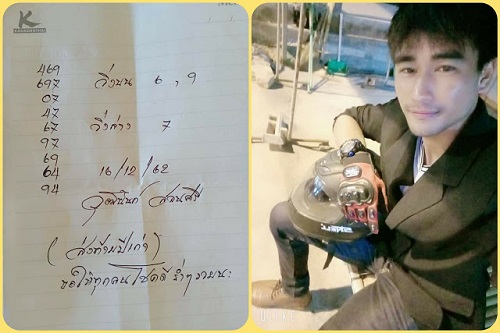 K
469
697 วิ่งบน 6 , 9
07
47
67 วิ่งล่าง 7
97
69
64 16/12/62
94
(ส่งท้ายปีเก่า)
ขอให้ทุกคนโชคดี ร่ำๆ รวยนะ